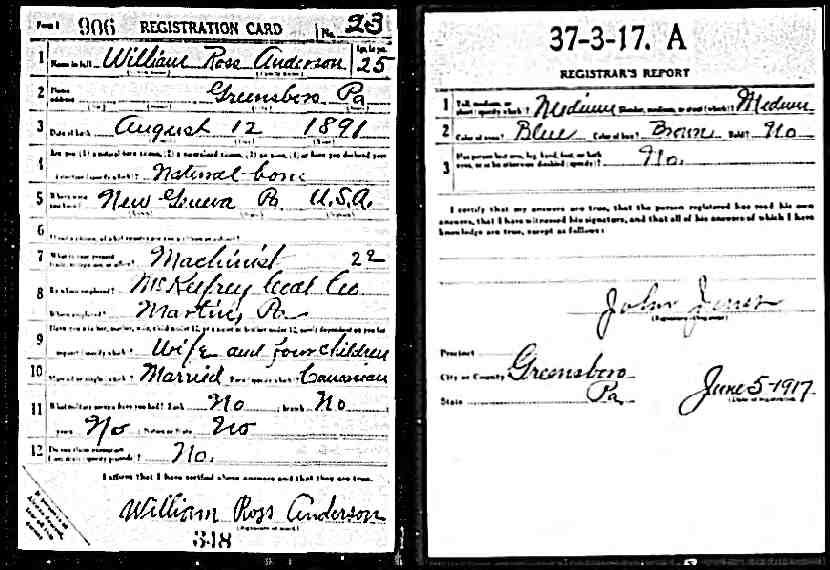 Form 1 906 REGISTRATION CARD No. 23
1 Name in full William Ross Anderson Age, in yrs. 25
2 Home address Greensboro Pa
3 Date of birth August 12 1891
4 Are you (1) a natural-born citizen, (2) a naturalized citizen, (3) an alien, (4) or have you declared your
intention (specify which)? Natural-born
5 Where were you born? New Geneva Pa U.S.A.
6
7 What is your present trade, occupation, or office? Machinist 22
8 By whom employed? Coal Co
Where employed? Martin, Pa
9 Have you a father, mother, wife, child under 12, or a sister or brother under 12, solely dependent on you for
support (specify which)? Wife and four children
10 Married or single (which)? Married Race (specify which)? Caucasian
11 What military service have you had? Rank No ; branch No
years No ; Nation or State No
12 Do you claim exemption from draft (specify grounds)? No.
I affirm that I have verified above answers and that they are true.
William Ross Anderson
348
37-3-17. A
REGISTRAR'S REPORT
1 Tall, medium, or short (specify which)? Medium Slender, medium, or stout (which)? Medium
2 Color of eyes? Blue Color of hair? Brown Bald? No
3 Has person lost arm, leg, hand, foot, or both eyes, or is he otherwise disabled (specify)? No.
I certify that my answers are true, that the person registered has read his own
answers, that I have witnessed his signature, and that all of his answers of which I have
knowledge are true, except as follows:
John Jones
Precinct
City or County Greensboro
State Pa. June 5-1917